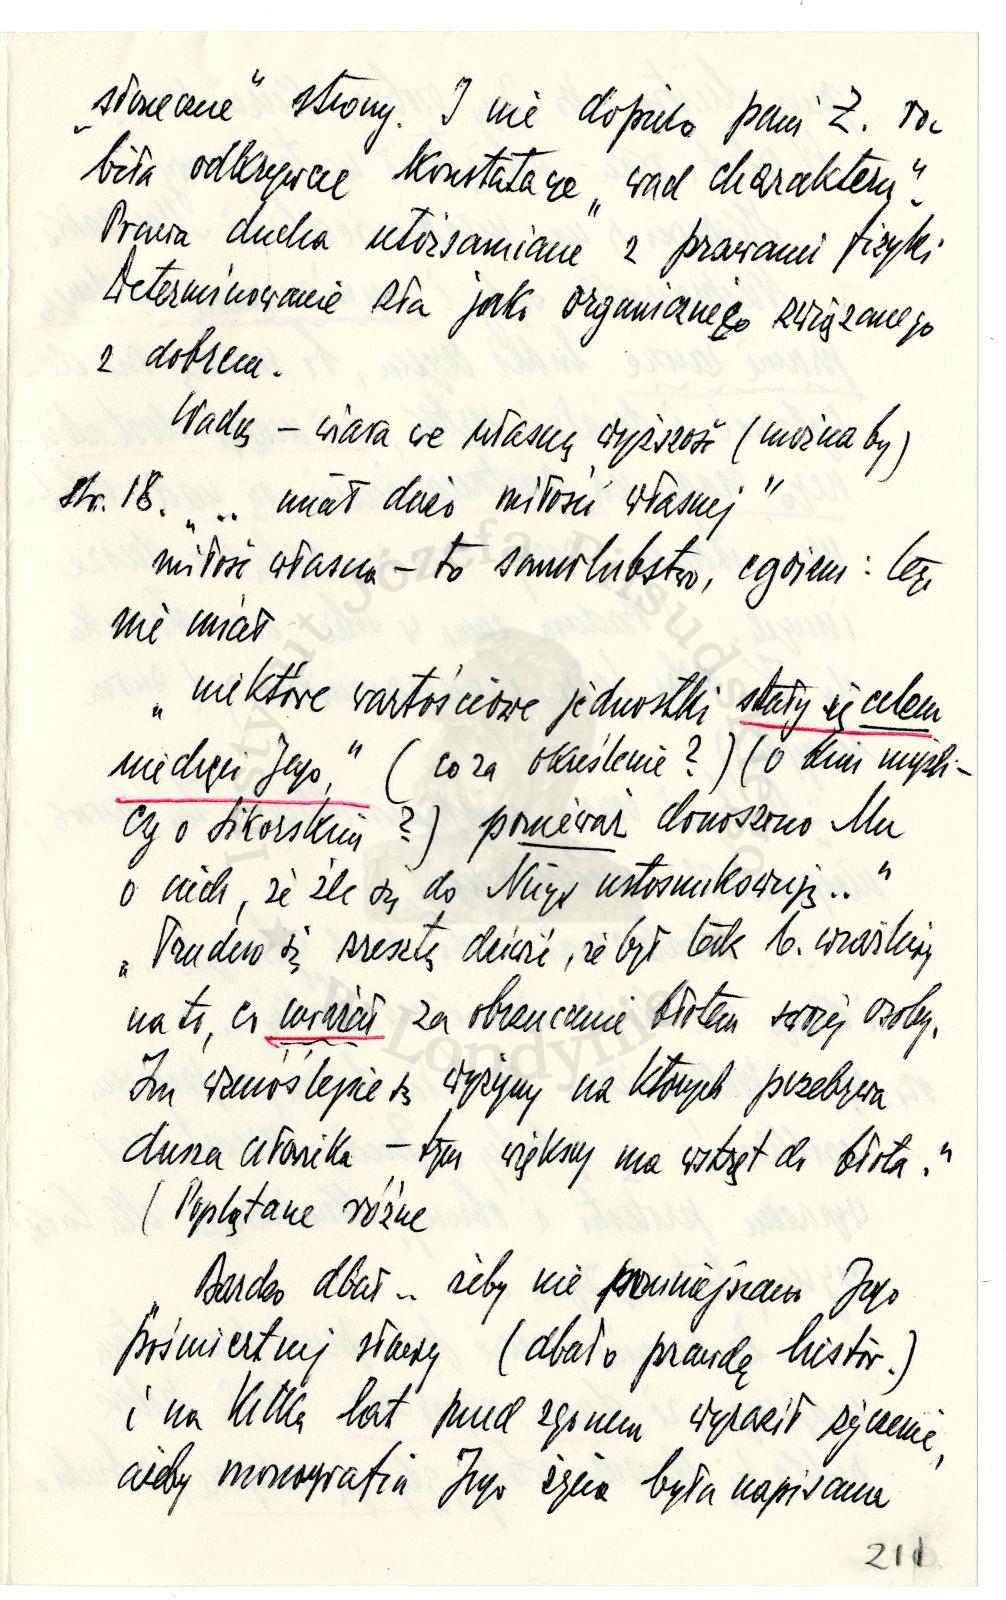 „słoneczne” strony. I nie dopiero pani Z. ro-
biła odkrywcze konstatacje „wad charakteru”.
Prawa ducha utożsamiane z prawami fizyki
Determinowanie zła jako organicznego związanego
z dobrem.
Wady – wiara we własną wyższość (można by)
str. 18. „.. miał dużo miłości własnej”
miłość własna – to samolubstwo, egoizm: tego
nie miał
„niektóre wartościowe jednostki stały się celem
niechęci Jego,” (co za określenie?) (O kim myśli –
czy o Sikorskim?) ponieważ donoszono Mu
o nich, że źle się do Niego ustosunkowują..”
„Trudno się zresztą dziwić, że był tak b. wrażliwy
na to, co uważał za obrzucanie błotem swojej osoby.
Im wznioślejsze są wyżyny na których przebywa
dusza człowieka – tym większy ma wstręt do błota.”
(Poplątane różne
„Bardzo dbał .. żeby nie pomniejszano Jego
pośmiertnej sławy (dbał o prawdę histor.)
i na kilka lat przed zgonem wyraził życzenie,
ażeby monografia Jego życia była napisana
211
Instytut Józefa Piłsudskiego
w Londynie